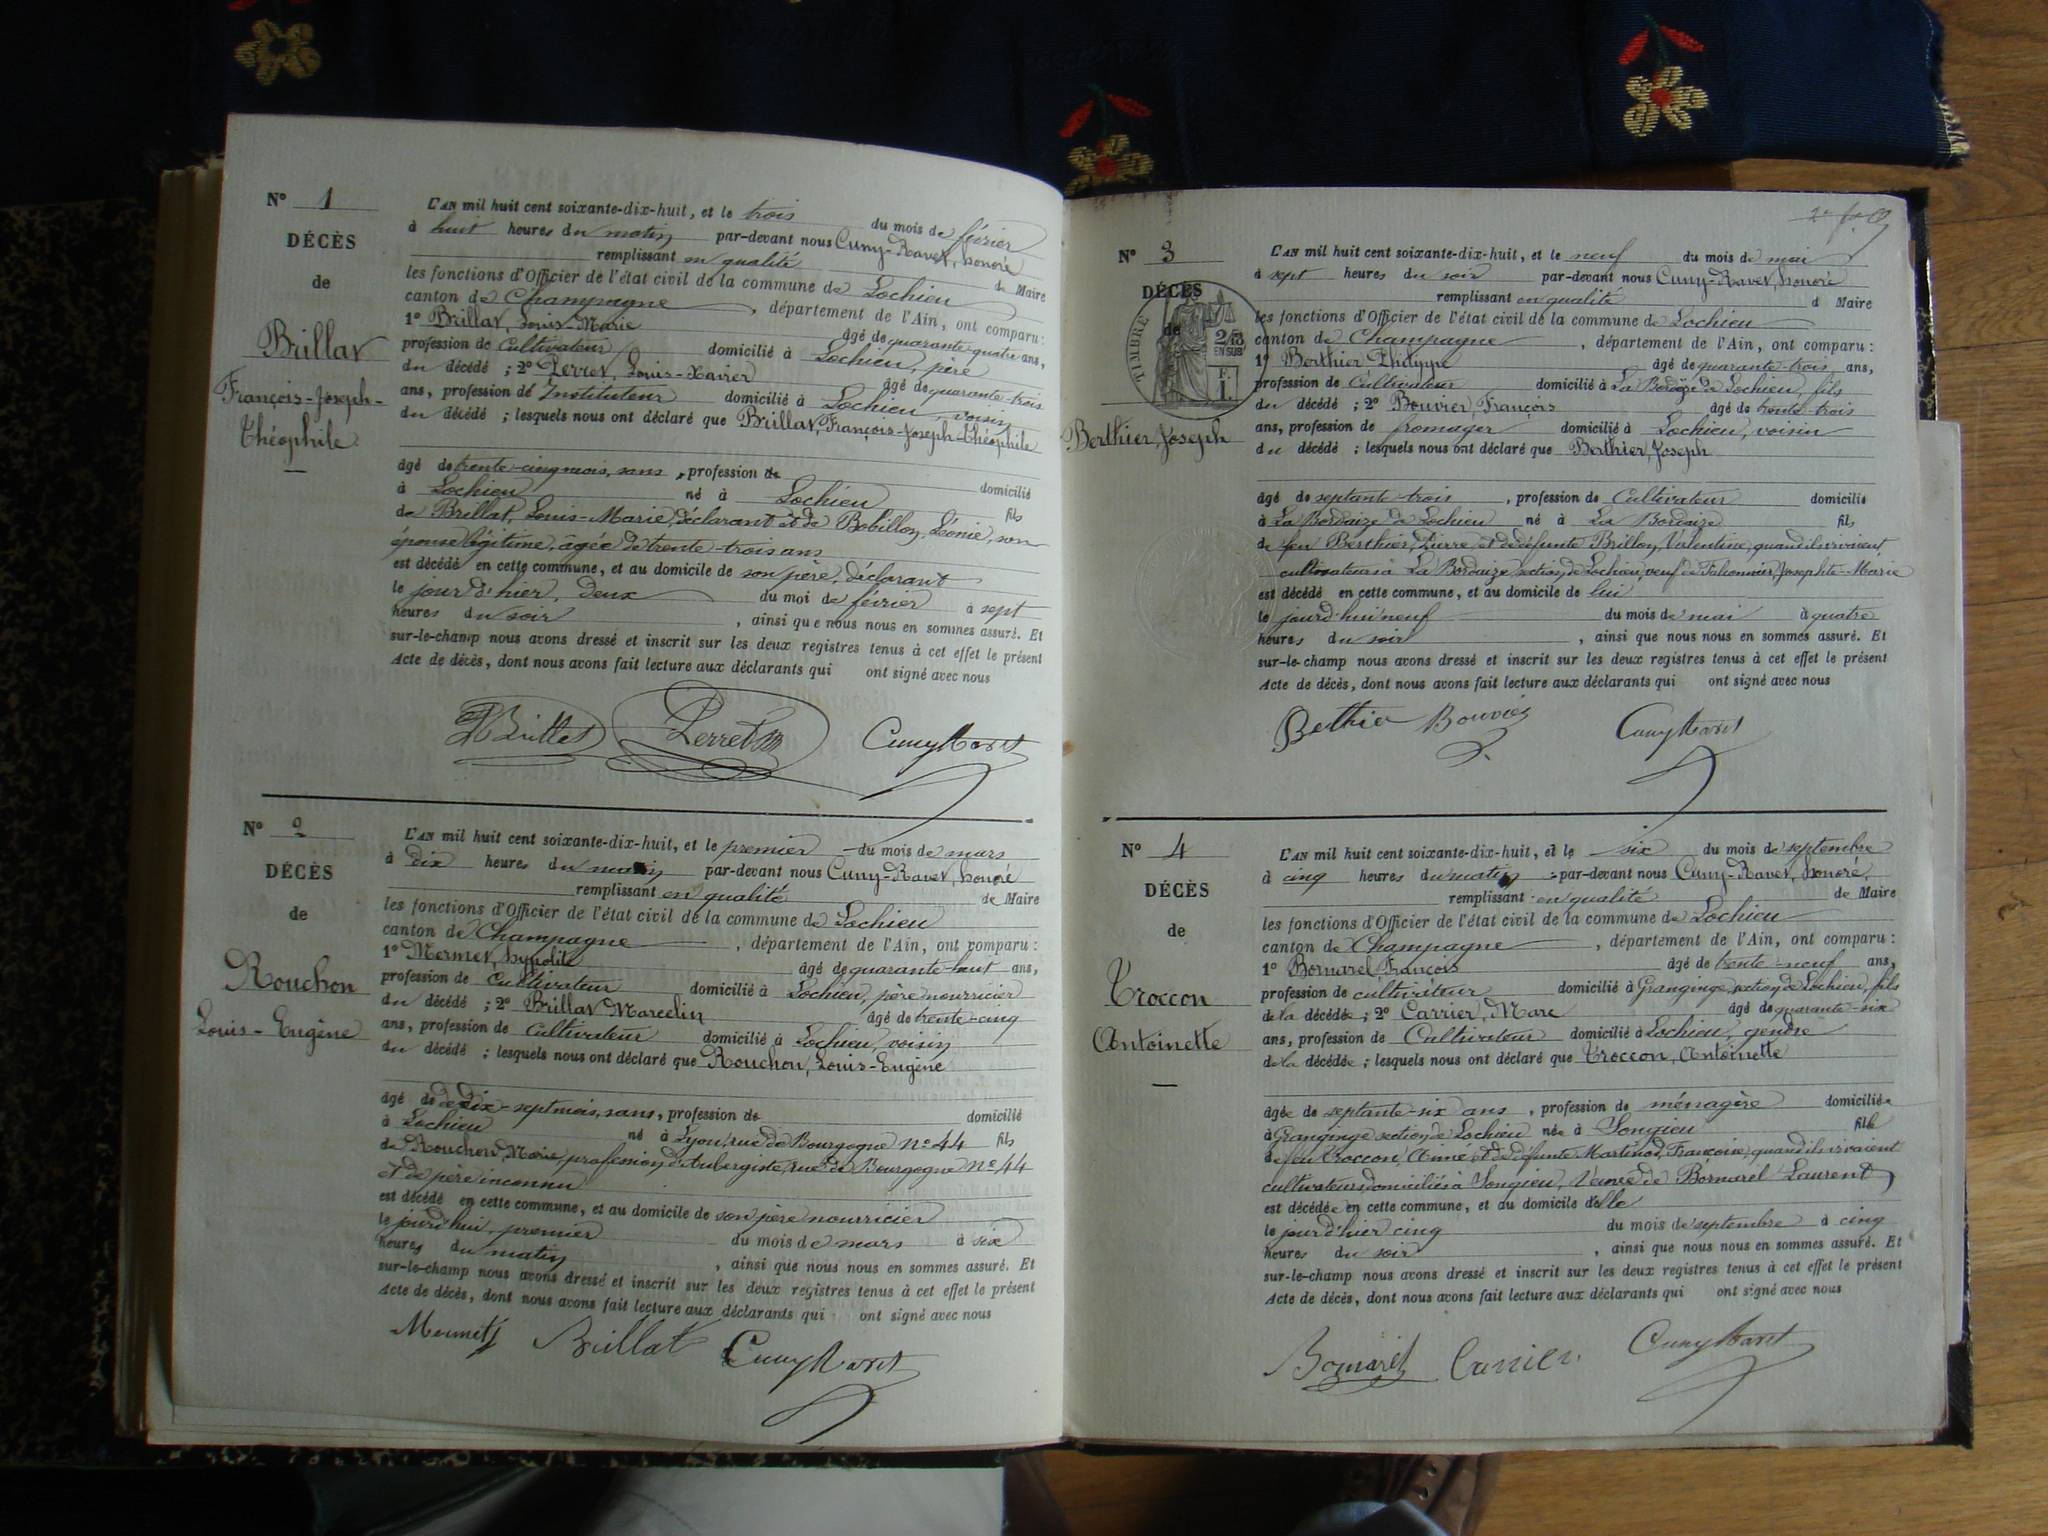 N° 1
DÉCÈS
de
Brillat
François-Joseph-
Théophile
L'AN mil huit cent soixante-dix-huit, et le trois du mois de février
à huit heures du matin par-devant nous Cuny-Ravet, honoré
remplissant en qualité de Maire
les fonctions d'Officier de l'état civil de la commune de Lochieu
canton de Champagne, département de l'Ain, ont comparu:
1° Brillat, Louis-Marie âgé de quarante-quatre ans,
profession de Cultivateur domicilié à Lochieu, père
du décédé; 2° Perret, Louis-Xavier âgé de quarante-trois
ans, profession de Instituteur domicilié à Lochieu, voisin
du décédé; lesquels nous ont déclaré que Brillat, François-Joseph-Théophile
âgé de trente-cinq mois, sans, profession de domicilié
à Lochieu né à Lochieu fils
de Brillat, Louis-Marie, déclarant et de Bobillon, Léonie, son
épouse légitime, âgée de trente-trois ans
est décédé en cette commune, et au domicile de son père, déclarant
le jour d'hier, deux du moi de février à sept
heures du soir, ainsi que nous nous en sommes assuré. Et
sur-le-champ nous avons dressé et inscrit sur les deux registres tenus à cet effet le présent
Acte de décès, dont nous avons fait lecture aux déclarants qui ont signé avec nous
Brillat Perret CunyRavet
N° 2
DÉCÈS
de
Rouchon
Louis-Eugène
L'AN mil huit cent soixante-dix-huit, et le premier du mois de mars
à dix heures du matin par-devant nous Cuny-Ravet, honoré
remplissant en qualité de Maire
les fonctions d'Officier de l'état civil de la commune de Lochieu
canton de Champagne, département de l'Ain, ont comparu:
1° Mermet, hypolite âgé de quarante-huit ans,
profession de Cultivateur domicilié à Lochieu, père nourricier
du décédé; 2° Brillat Marcelin âgé de trente-cinq
ans, profession de Cultivateur domicilié à Lochieu, voisin
du décédé; lesquels nous ont déclaré que Rouchon, Louis-Eugène
âgé de dedix-sept mois, sans, profession de domicilié
à Lochieu né à Lyon, rue de Bourgogne N° 44 fils
de Rouchon, Marie, profession d'Aubergiste, rue de Bourgogne N° 44
et de père inconnu
est décédé en cette commune, et au domicile de son père nourricier
le jourd'hui premier du mois de mars à six
heures du matin, ainsi que nous nous en sommes assuré. Et
sur-le-champ nous avons dressé et inscrit sur les deux registres tenus à cet effet le présent
Acte de décès, dont nous avons fait lecture aux déclarants qui ont signé avec nous
Mermet Brillat CunyRavet
N° 3
DÉCÈS
de
TIMBRE
2/10
EN SUS
Berthier, Joseph
L'AN mil huit cent soixante-dix-huit, et le neuf du mois de mai
à sept heures du soir par-devant nous Cuny-Ravet, honoré
remplissant en qualité d Maire
les fonctions d'Officier de l'état civil de la commune de Lochieu
canton de Champagne, département de l'Ain, ont comparu:
1° Berthier Philippe âgé de quarante-trois ans,
profession de Cultivateur domicilié à La Bordèze de Lochieu, fils
du décédé; 2° Bouvier, François âgé de trente-trois
ans, profession de fromager domicilié à Lochieu, voisin
du décédé; lesquels nous ont déclaré que Berthier, Joseph
âgé de septante-trois, profession de Cultivateur domicilié
à La Bordaize de Lochieu né à La Bordaize fils
de feu Berthier, Pierre, et de défunte Brillon, Valentine, quand ils vivaient,
cultivateurs à La Bordaize, section de Lochieu, veuf de Falconnier, Josephte-Marie
est décédé en cette commune, et au domicile de lui
le jourd'hui neuf du mois de mai à quatre
heures du soir, ainsi que nous nous en sommes assuré. Et
sur-le-champ nous avons dressé et inscrit sur les deux registres tenus à cet effet le présent
Acte de décès, dont nous avons fait lecture aux déclarants qui ont signé avec nous
Bethier Bouvier CunyRavet
N° 4
DÉCÈS
de
Troccon
Antoinette
L'AN mil huit cent soixante-dix-huit, et le six du mois de septembre
à cinq heures du matin par-devant nous Cuny-Ravet, honoré,
remplissant en qualité de Maire
les fonctions d'Officier de l'état civil de la commune de Lochieu
canton de Champagne, département de l'Ain, ont comparu:
1° Bornarel François âgé de trente-neuf ans,
profession de cultivateur domicilié à Granginge, section de Lochieu, fils
de la décédée; 2° Carrier, Marc âgé de quarante-six
ans, profession de Cultivateur domicilié à Lochieu, gendre
de la décédée; lesquels nous ont déclaré que Troccon, Antoinette
âgée de septante-six ans, profession de ménagère domiciliée
à Granginge section de Lochieu née à Songieu fille
de feu Troccon, Anne, et de défunte Martinod, Françoise, quand ils vivaient
cultivateurs domiciliés à Songieu, Veuve de Bornarel Laurent
est décédée en cette commune, et au domicile d'elle
le jour d'hier cinq du mois de septembre à cinq
heures du soir, ainsi que nous nous en sommes assuré. Et
sur-le-champ nous avons dressé et inscrit sur les deux registres tenus à cet effet le présent
Acte de décès, dont nous avons fait lecture aux déclarants qui ont signé avec nous
Bornarel Carrier CunyRavet